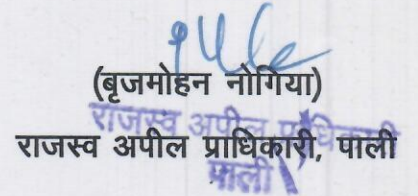 (बृजमोहन नोगिया)
राजस्व अपील प्राधिकारी, पाली
राजस्व अपील प्राधिकारी
पाली